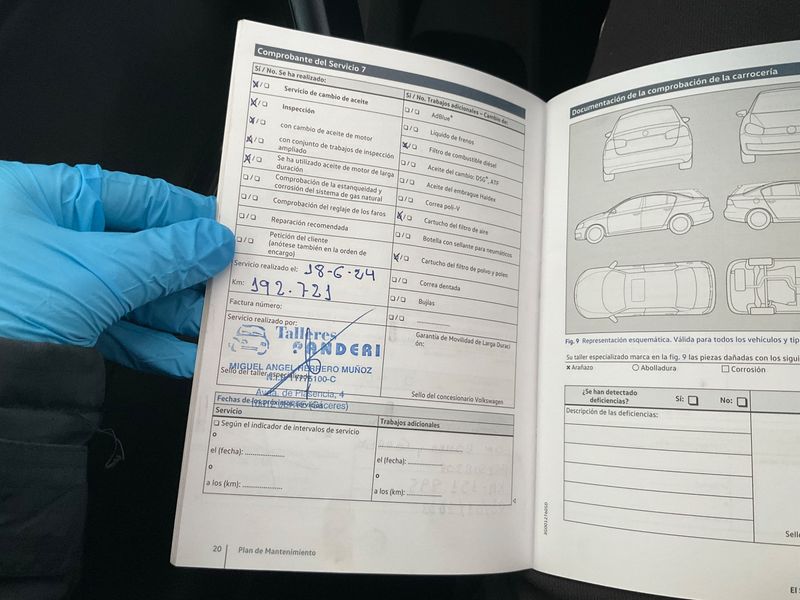 Comprobante del Servicio 7
Sí / No. Se ha realizado:
Servicio de cambio de aceite
Inspección
con cambio de aceite de motor
con conjunto de trabajos de inspección
ampliado
Se ha utilizado aceite de motor de larga
duración
Comprobación de la estanqueidad y
corrosión del sistema de gas natural
Comprobación del reglaje de los faros
Reparación recomendada
Petición del cliente
(anótese también en la orden de
encargo)
Servicio realizado el: 18-6-24
Km: 192.721
Factura número:
Servicio realizado por:
Talleres
PANDERI
MIGUEL ANGEL HERRERO MUÑOZ
Sello del taller especializado
Avda. de Plasencia, 4
Fechas de los próximos servicios
Servicio
Según el indicador de intervalos de servicio
o
el (fecha):
o
a los (km):
20 Plan de Mantenimiento
Sí / No. Trabajos adicionales – Cambio de:
AdBlue
Líquido de frenos
Filtro de combustible diésel
Aceite del cambio: DSG, ATF
Aceite del embrague Haldex
Correa poli-V
Cartucho del filtro de aire
Botella con sellante para neumáticos
Cartucho del filtro de polvo y polen
Correa dentada
Bujías
Garantía de Movilidad de Larga Duraci
ón:
Sello del concesionario Volkswagen
Trabajos adicionales
el (fecha):
o
a los (km):
Documentación de la comprobación de la carrocería
Fig. 9 Representación esquemática. Válida para todos los vehículos y tip
Su taller especializado marca en la fig. 9 las piezas dañadas con los sigui
x Arañazo
Abolladura
Corrosión
¿Se han detectado
deficiencias?
Sí:
No:
Descripción de las deficiencias:
Selle
El s